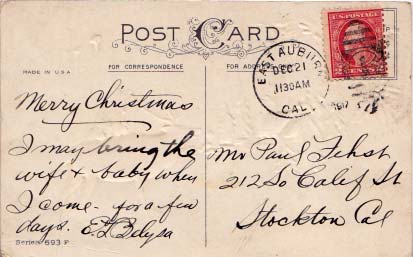 POST CARD
MADE IN U.S.A
FOR CORRESPONDENCE
FOR ADDRESS
U.S. POSTAGE
2 CENTS 2
EAST AUBURN
DEC 21
1130AM
1917
CAL.
Merry Christmas
I may bring the
wife & baby when
I come - for a few
days.
Series 693 F
Mr Paul
212 So Calif St
Stockton Cal